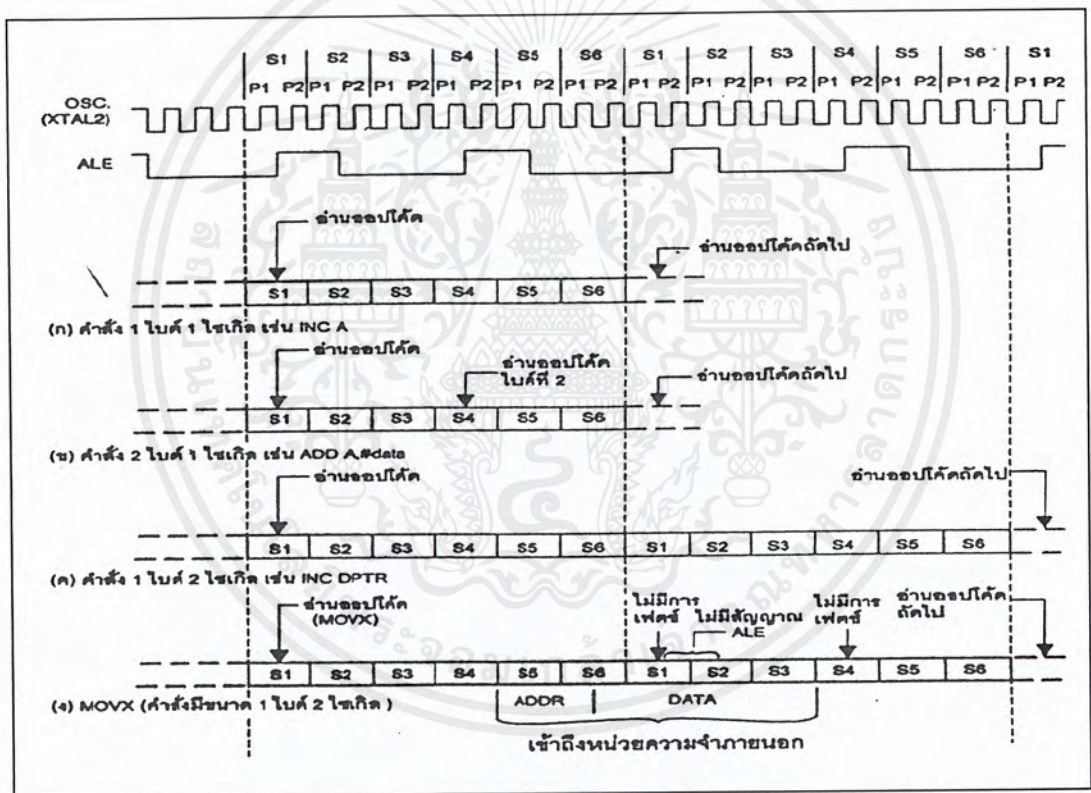 S1 S2 S3 S4 S5 S6 S1 S2 S3 S4 S5 S6 S1
P1 P2 P1 P2 P1 P2 P1 P2 P1 P2 P1 P2 P1 P2 P1 P2 P1 P2 P1 P2 P1 P2 P1 P2 P1 P2
OSC.
(XTAL2)
ALE
อ่านออปโค้ด
อ่านออปโค้ดถัดไป
S1 S2 S3 S4 S5 S6
(ก) คำสั่ง 1 ไบต์ 1 ไซเกิล เช่น INC A
อ่านออปโค้ด
อ่านออปโค้ด
ไบต์ที่ 2
อ่านออปโค้ดถัดไป
S1 S2 S3 S4 S5 S6
(ข) คำสั่ง 2 ไบต์ 1 ไซเกิล เช่น ADD A,#data
อ่านออปโค้ด
อ่านออปโค้ดถัดไป
S1 S2 S3 S4 S5 S6 S1 S2 S3 S4 S5 S6
(ค) คำสั่ง 1 ไบต์ 2 ไซเกิล เช่น INC DPTR
อ่านออปโค้ด
(MOVX)
ไม่มีการ
เฟตช์
ไม่มีสัญญาณ
ALE
ไม่มีการ
เฟตช์
อ่านออปโค้ด
ถัดไป
S1 S2 S3 S4 S5 S6 S1 S2 S3 S4 S5 S6
(ง) MOVX (คำสั่งมีขนาด 1 ไบต์ 2 ไซเกิล )
ADDR DATA
เข้าถึงหน่วยความจำภายนอก